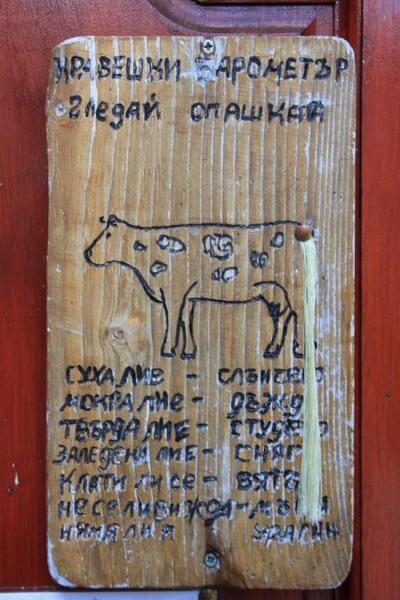 КРАВЕШКИ БАРОМЕТЪР
гледай опашката
СУХА ЛИЕ - СЛЪНЧЕВО
МОКРА ЛИЕ - ДЪЖД
ТВЪРДА ЛИЕ - СТУДЕНО
ЗАЛЕДЕНА ЛИЕ - СНЯГ
КЛАТИ ЛИ СЕ - ВЯТЪР
НЕ СЕ ЛИ ВИЖДА - МЪГЛА
НЯМА ЛИ Я УРАГАН